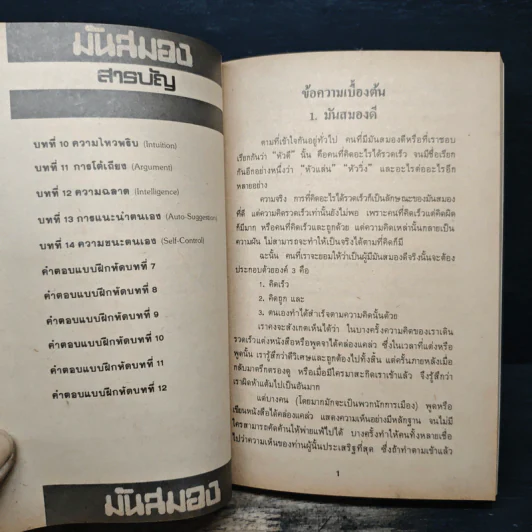 มันสมอง
สารบัญ
บทที่ 10 ความไหวพริบ (Intuition)
บทที่ 11 การโต้เถียง (Argument)
บทที่ 12 ความฉลาด (Intelligence)
บทที่ 13 การแนะนำตนเอง (Auto-Suggestion)
บทที่ 14 ความชนะตนเอง (Self-Control)
คำตอบแบบฝึกหัดบทที่ 7
คำตอบแบบฝึกหัดบทที่ 8
คำตอบแบบฝึกหัดบทที่ 9
คำตอบแบบฝึกหัดบทที่ 10
คำตอบแบบฝึกหัดบทที่ 11
คำตอบแบบฝึกหัดบทที่ 12
มันสมอง
ข้อความเบื้องต้น
1. มันสมองดี
ตามที่เข้าใจกันอยู่ทั่วไป คนที่มีมันสมองดีหรือที่เราชอบ
เรียกกันว่า "หัวดี" นั้น คือคนที่คิดอะไรได้รวดเร็ว จนมีชื่อเรียก
กันอีกอย่างหนึ่งว่า "หัวแล่น" "หัววิ่ง" และอะไรต่ออะไรอีก
หลายอย่าง
ความจริง การที่คิดอะไรได้รวดเร็วก็เป็นลักษณะของมันสมอง
ที่ดี แต่ความคิดรวดเร็วเท่านั้นยังไม่พอ เพราะคนที่คิดเร็วแต่คิดผิด
ก็มีมาก หรือคนที่คิดเร็วและถูกด้วย แต่ความคิดเหล่านั้นกลายเป็น
ความฝัน ไม่สามารถจะทำให้เป็นจริงได้ตามที่คิดก็มี
ฉะนั้น คนที่เราจะยอมให้ว่าเป็นผู้มีมันสมองดีจริงนั้นจะต้อง
ประกอบด้วยองค์ 3 คือ
1. คิดเร็ว
2. คิดถูก และ
3. ตนเองทำได้สำเร็จตามความคิดนั้นด้วย
เราคงจะสังเกตเห็นได้ว่า ในบางครั้งความคิดของเราเดิน
รวดเร็วแต่งหนังสือหรือพูดจาได้คล่องแคล่ว ซึ่งในเวลาที่แต่งหรือ
พูดนั้น เรารู้สึกว่าดีวิเศษและถูกต้องไปทั้งสิ้น แต่ครั้นภายหลังเมื่อ
กลับมาตรึกตรองดู หรือเมื่อมีใครมาสะกิดเราเข้าแล้ว จึงรู้สึกว่า
เราผิดท้าแต้มไปเป็นอันมาก
แต่บางคน (โดยมากมักจะเป็นพวกนักการเมือง) พูดหรือ
เขียนหนังสือได้คล่องแคล่ว แสดงความเห็นอย่างมีหลักฐาน จนไม่มี
ใครสามารถคัดค้านให้พ่ายแพ้ไปได้ บางครั้งทำให้คนทั้งหลายเชื่อ
ไปว่าความเห็นของท่านผู้นั้นประเสริฐที่สุด ซึ่งถ้าทำตามเข้าแล้ว
1